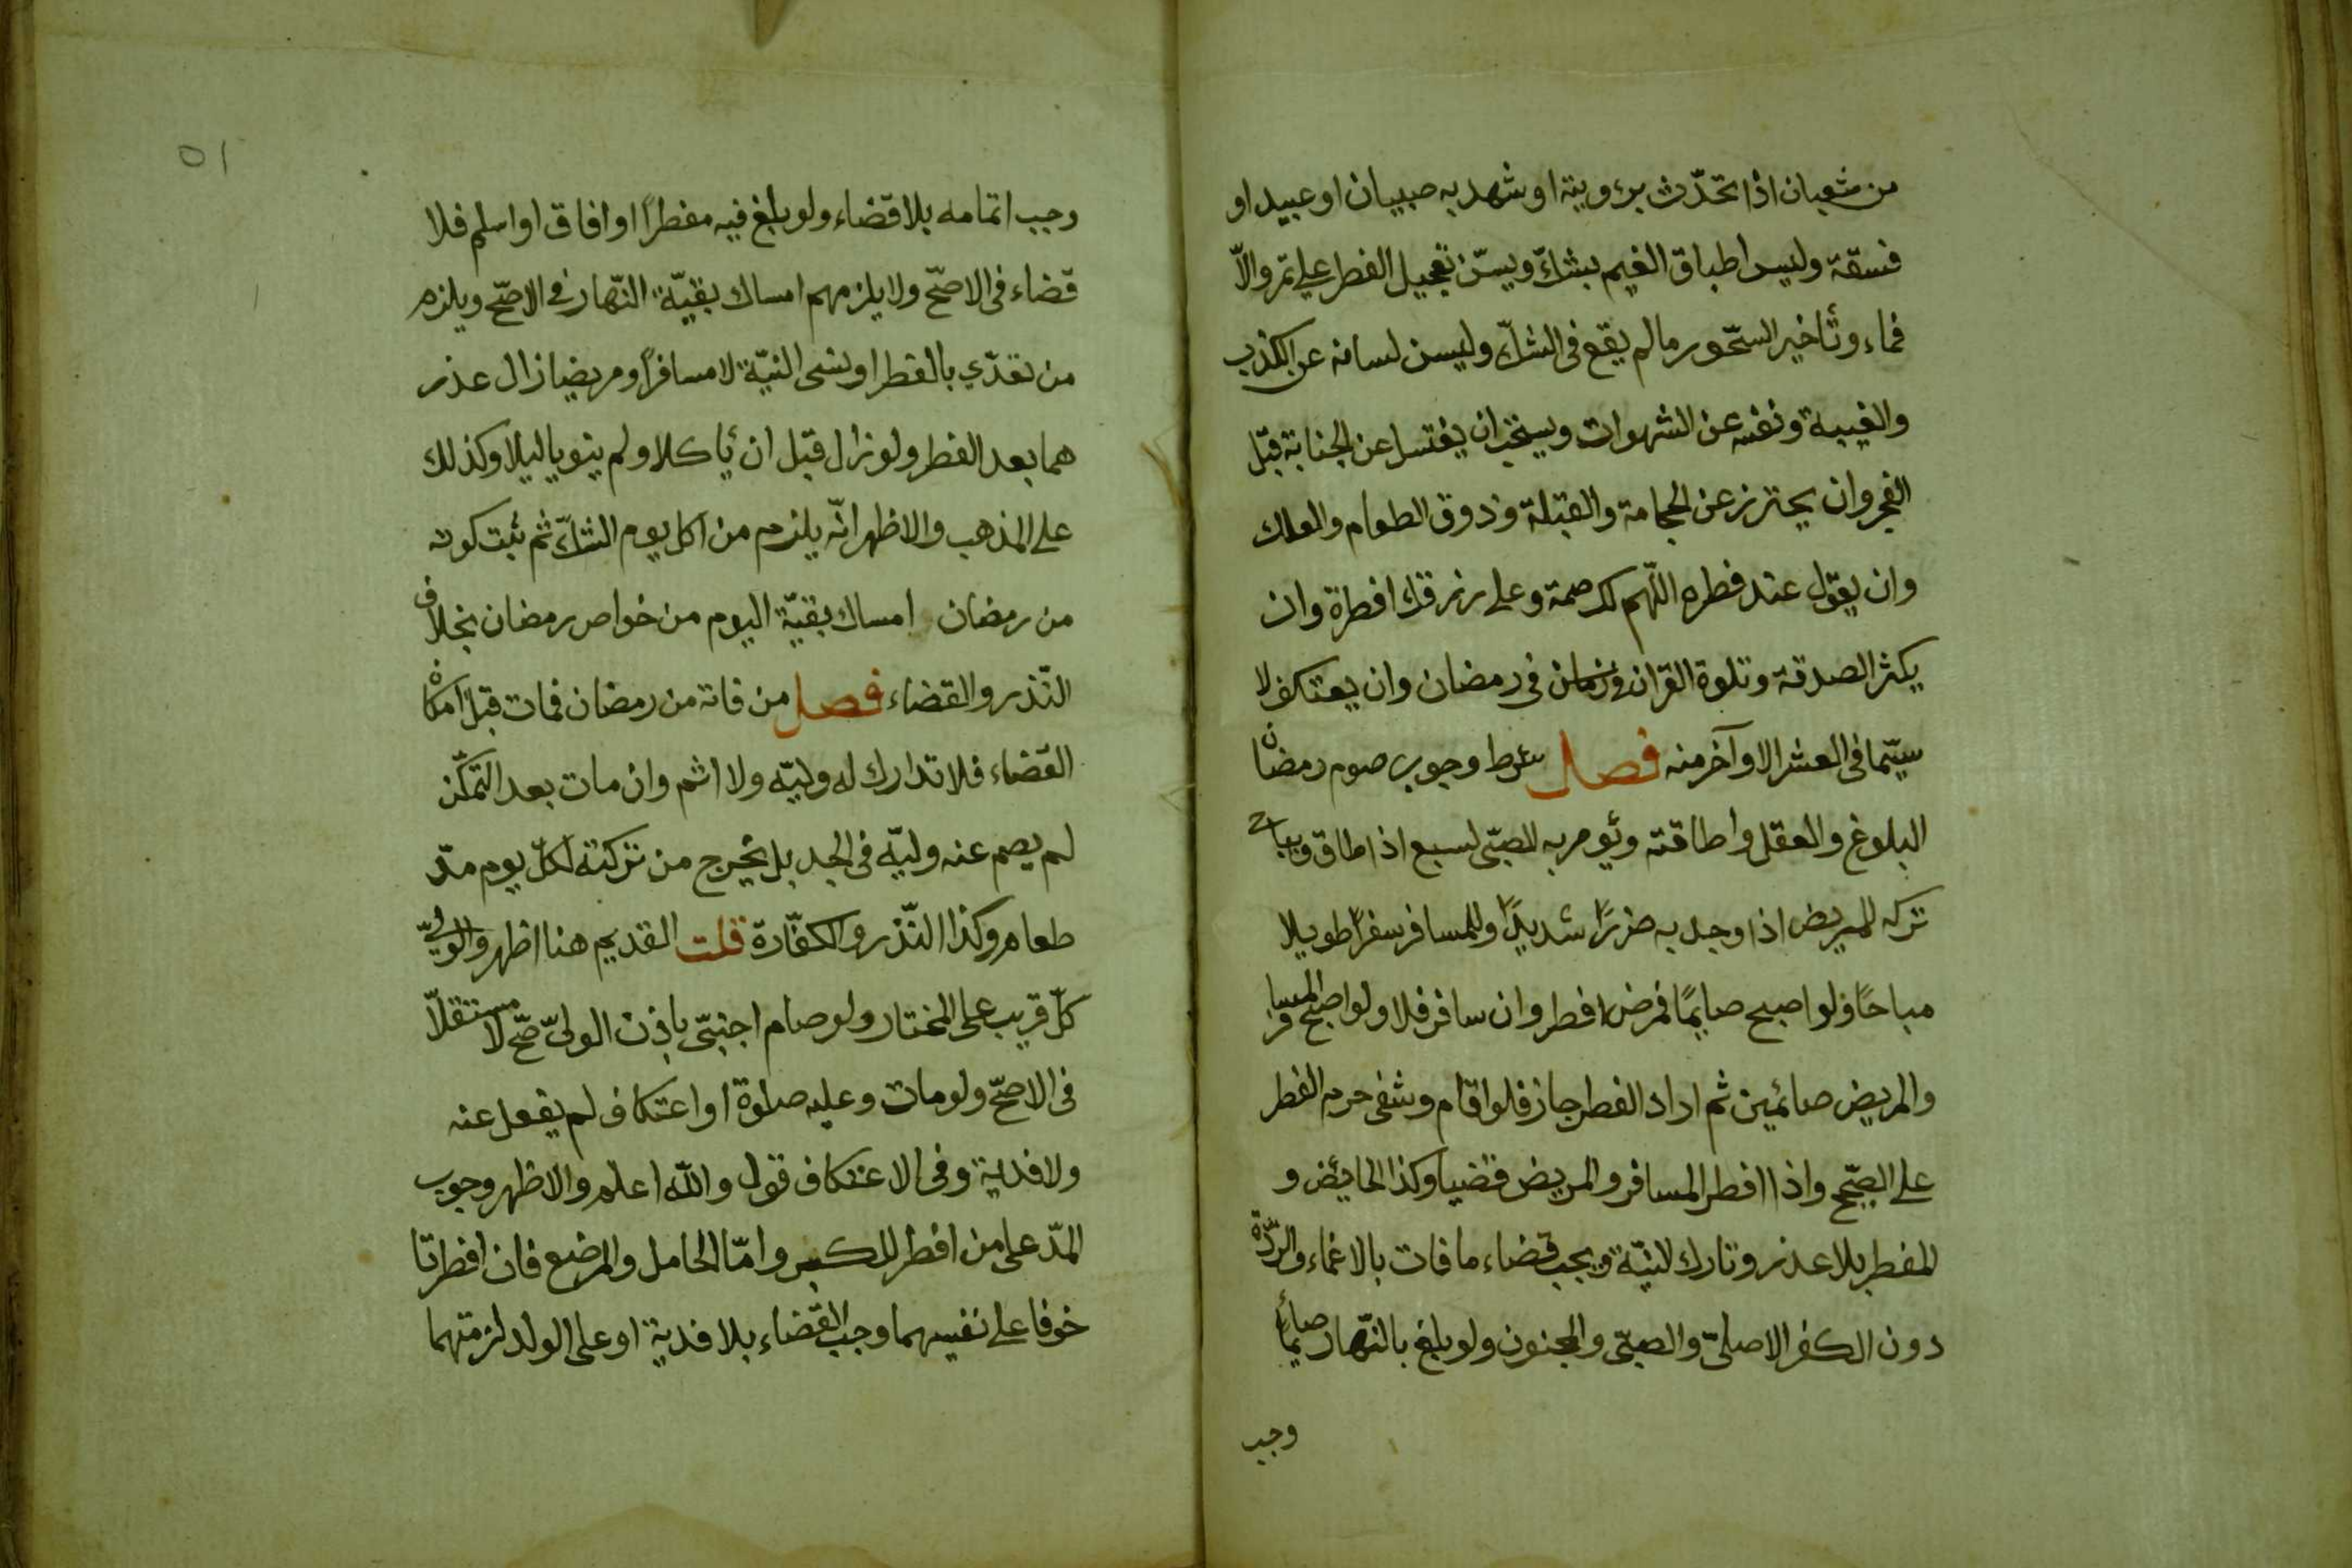 من شعبان اذا تحدّث برءويته او شهد به صبيان او عبيد او
فسقة وليس اطباق الغيم بشكّ ويسنّ تعجيل الفطر على تمر والاّ
فماء وتأخير السّحور مالم يقع فى الشكّ وليسن لسانه عن الكذب
والغيبة ونفسه عن الشهوات ويستحبّ ان يغتسل عن الجنابة قبل
الفجر وان يحترز عن الحجامة والقبلة وذوق الطعام والعلك
وان يقول عند فطره اللّهم لك صمة وعلى رزقك افطرة وان
يكثر الصدقة وتلوة القران فى رمضان وان يعتكف لا
سيّما فى العشر الاوآخر منه فصل شرط وجوب صوم رمضان
البلوغ والعقل واطاقته ويؤمر به الصبّى لسبع اذا اطاق ويباح
تركه للمريض اذا وجد به ضررًا شديدًا وللمسافر سفرًا طويلا
مباحًا ولو اصبح صايمًا فمرض افطر وان سافر فلا ولو اصبح المسافر
والمريض صائمين ثم اراد الفطر جاز فلو اقام وشفى حرم الفطر
على الصّحيح واذا افطر المسافر والمريض قضيا وكذا الحايض و
المفطر بلا عذر وتارك لنيّة ويجب قضاء ما فات بالاغماء والرّدّة
دون الكفر الاصلىّ والصبّى والمجنون ولو بلغ بالنّهار صايمًا
وجب
٥١
وجب اتمامه بلا قضاء ولو بلغ فيه مفطرًا او افاق او اسلم فلا
قضاء فى الاصّح ولا يلزمهم امساك بقيّة النّهار فى الاصّح ويلزم
من تعدّي بالفطر او نسى النيّة لا مسافرًا ومريضا زال عذر
هما بعد الفطر ولو زال قبل ان يأكلا ولم ينويا ليلا وكذلك
على المذهب والاظهر انّه يلزم من اكل يوم الشكّ ثم ثبت كونه
من رمضان امساك بقيّة اليوم من خواص رمضان بخلاف
النّذر والقضاء فصل من فاته من رمضان فمات قبل امكان
القضاء فلا تدارك له وليّه ولا اثم وان مات بعد التمكّن
لم يصم عنه وليّه فى الجد بل يخرج من تركته لكلّ يوم مدّ
طعام وكذا النّذر والكفّارة قلت القديم هنا اظهر والولىّ
كلّ قريب على المختار ولو صام اجنبىّ باذن الولىّ صّح لا مستقلاّ
فى الاصّح ولو مات وعليه صلوة او اعتكاف لم يفعل عنه
ولا فدية وفى الاعتكاف قول واللّه اعلم والاظهر وجوب
المدّ على من افطر للكبر وامّا الحامل والمرضع فان افطرتا
خوفا على نفسهما وجب القضاء بلا فدية او على الولد لزمتهما